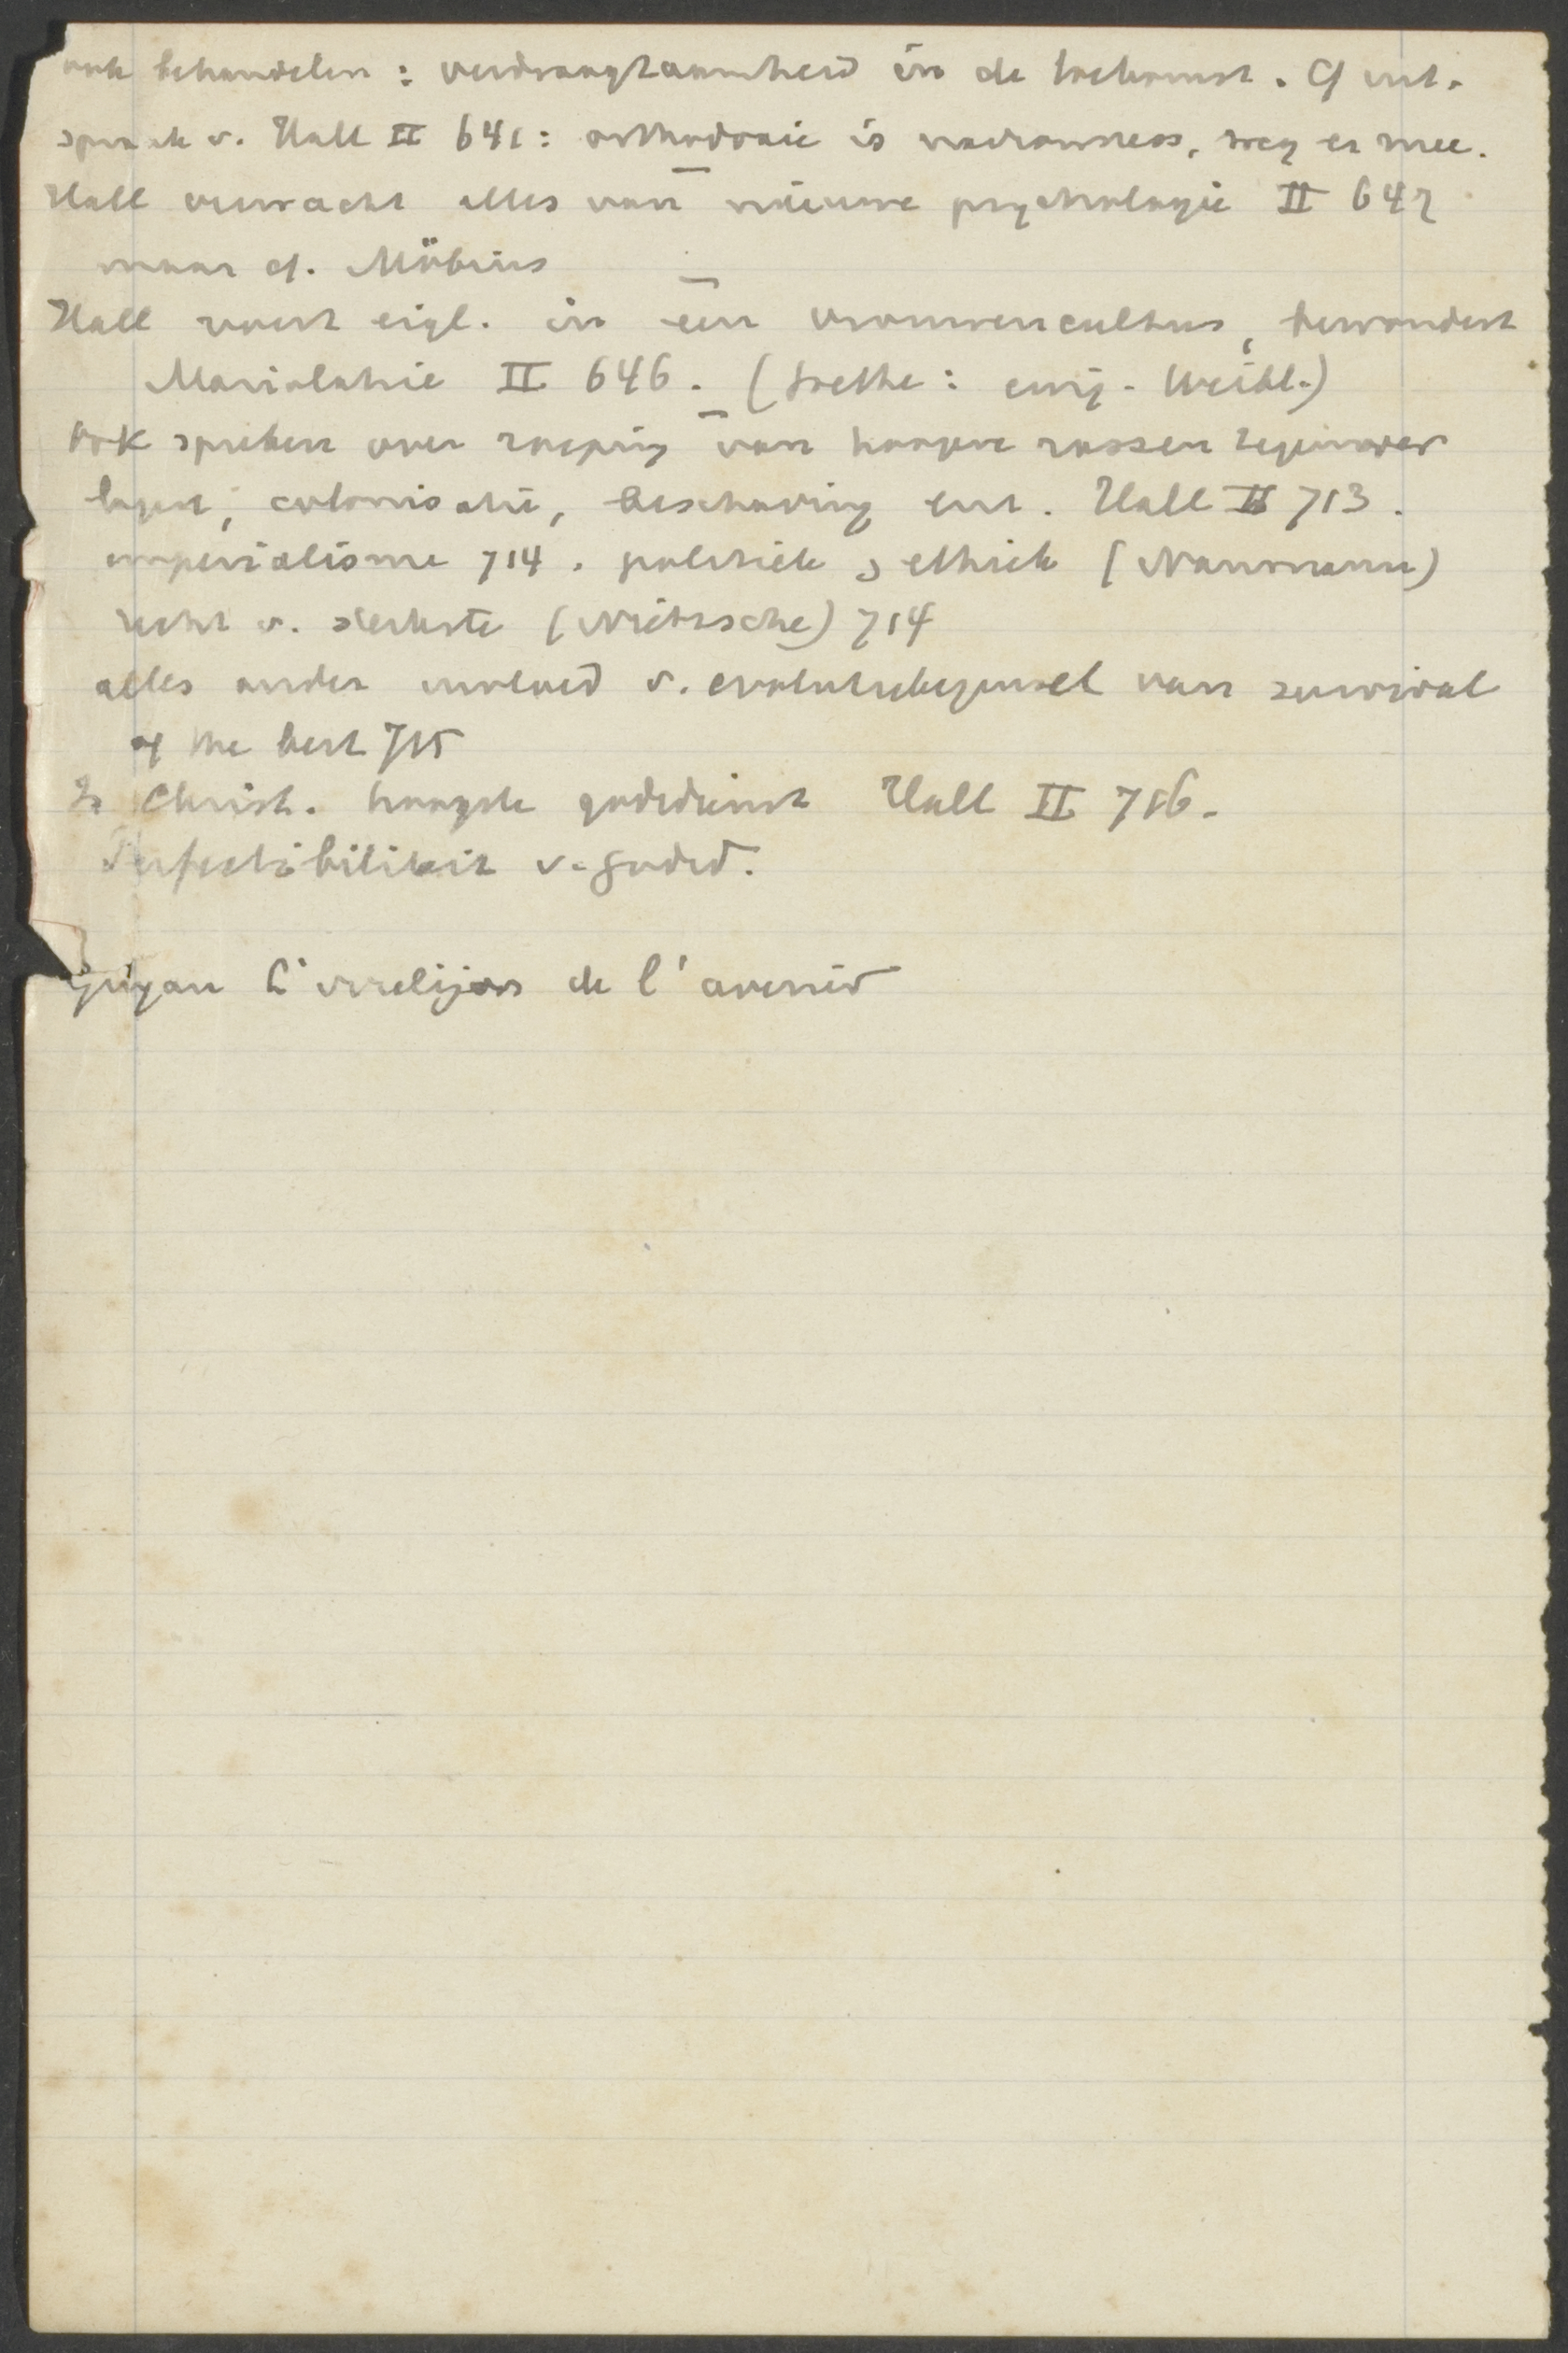 ook behandelen : verdraagzaamheid in de toekomst. Cf uit-
spraak v. Hall II 641: orthodoxie is, weg er mee.
Hall verwacht alles van nieuwe psychologie II 642
maar cf. Möbius
Hall voert eigl. in een vrouwencultus, bewondert
Mariolatrie II 646. (Goethe: ewig-Weibl.)
ook spreken over roeping van hoogere rassen tegenover
lagere, colonisatie, beschaving enz. Hall II 713.
imperialisme 714. politiek & ethiek (Naumann)
recht v. sterkste (Nietzsche) 714
alles onder invloed v. evolutiebeginsel van survival
of the best 715
Is Christ. hoogste godsdienst Hall II 716.
Perfectibiliteit v. godsd.
Guyau L'irreligion de l'avenir